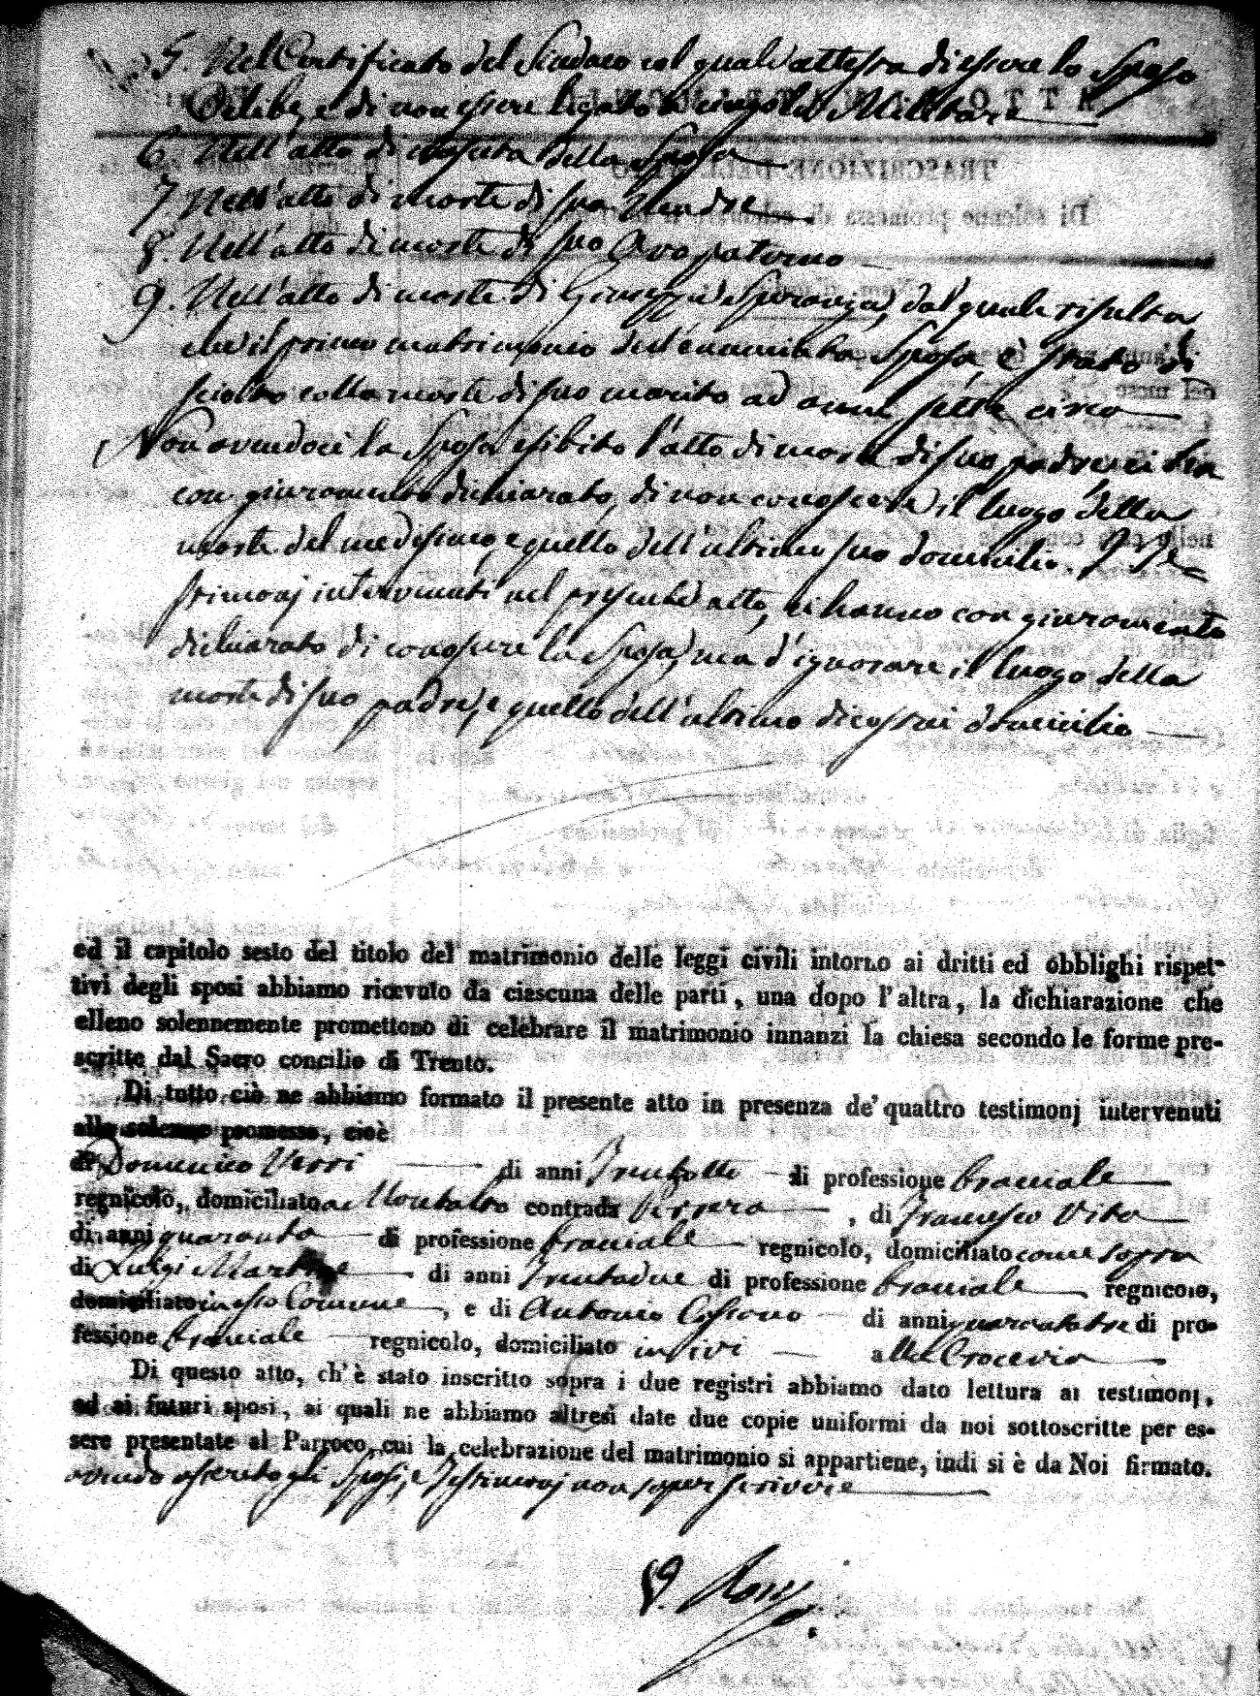 5. Nel Certificato del Sindaco col quale attesta di essere lo Sposo
Celibe, e di non essere ligato a cingolo Militare
6. Nell'atto di nascita della Sposa
7. Nell'atto di morte di sua Madre
8. Nell'atto di morte di suo Avo paterno
9. Nell'atto di morte di Giuseppe Speranza, dal quale risulta
che il primo matrimonio dell'enunciata Sposa, è stato di
sciolto colla morte di suo marito ad anni sette circa
Non avendoci la Sposa esibito l'atto di morte di suo padre, ci ha
con giuramento dichiarato, di non conoscere il luogo della
morte del medesimo, e quello dell'ultimo suo domicilio. I Te=
stimonj intervenuti nel presente atto, ci hanno con giuramento
dichiarato di conoscere la Sposa, ma d'ignorare il luogo della
morte di suo padre, e quello dell'ultimo di costui domicilio
ed il capitolo sesto del titolo del matrimonio delle leggi civili intorno ai dritti ed obblighi rispet-
tivi degli sposi abbiamo ricevuto da ciascuna delle parti, una dopo l'altra, la dichiarazione che
elleno solennemente promettono di celebrare il matrimonio innanzi la chiesa secondo le forme pre-
scritte dal Sacro concilio di Trento.
Di tutto ciò ne abbiamo formato il presente atto in presenza de' quattro testimonj intervenuti
alla solenne promessa, cioè
di Domenico Verri di anni Trentotto di professione bracciale
regnicolo, domiciliato a Montalto contrada , di Francesco Vita
di anni quaranta di professione bracciale regnicolo, domiciliato come sopra
di Luigi Martire di anni Trentadue di professione bracciale regnicolo,
domiciliato in esso Comune, e di Antonio di anni quarantatre di pro-
fessione bracciale regnicolo, domiciliato in ivi alla Crocevia
Di questo atto, ch'è stato inscritto sopra i due registri abbiamo dato lettura ai testimonj,
ed ai futuri sposi, ai quali ne abbiamo altresì date due copie uniformi da noi sottoscritte per es-
sere presentate al Parroco, cui la celebrazione del matrimonio si appartiene, indi si è da Noi firmato.
avendo asserito gli Sposi, e Testimonj non saper scrivere